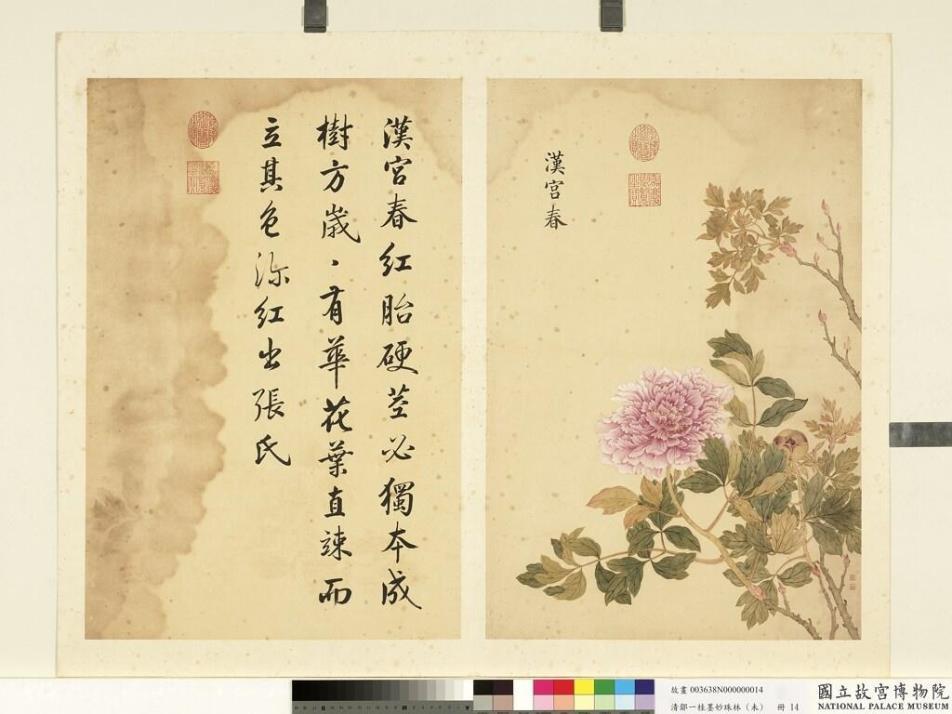 漢宮春
漢宮春紅胎硬莖必獨本成
樹方歲、有華花葉直竦而
立其色深紅出張氏
故畫 003638N000000014
清鄒一桂墨妙珠林（未） 冊 14
國立故宮博物院
NATIONAL PALACE MUSEUM